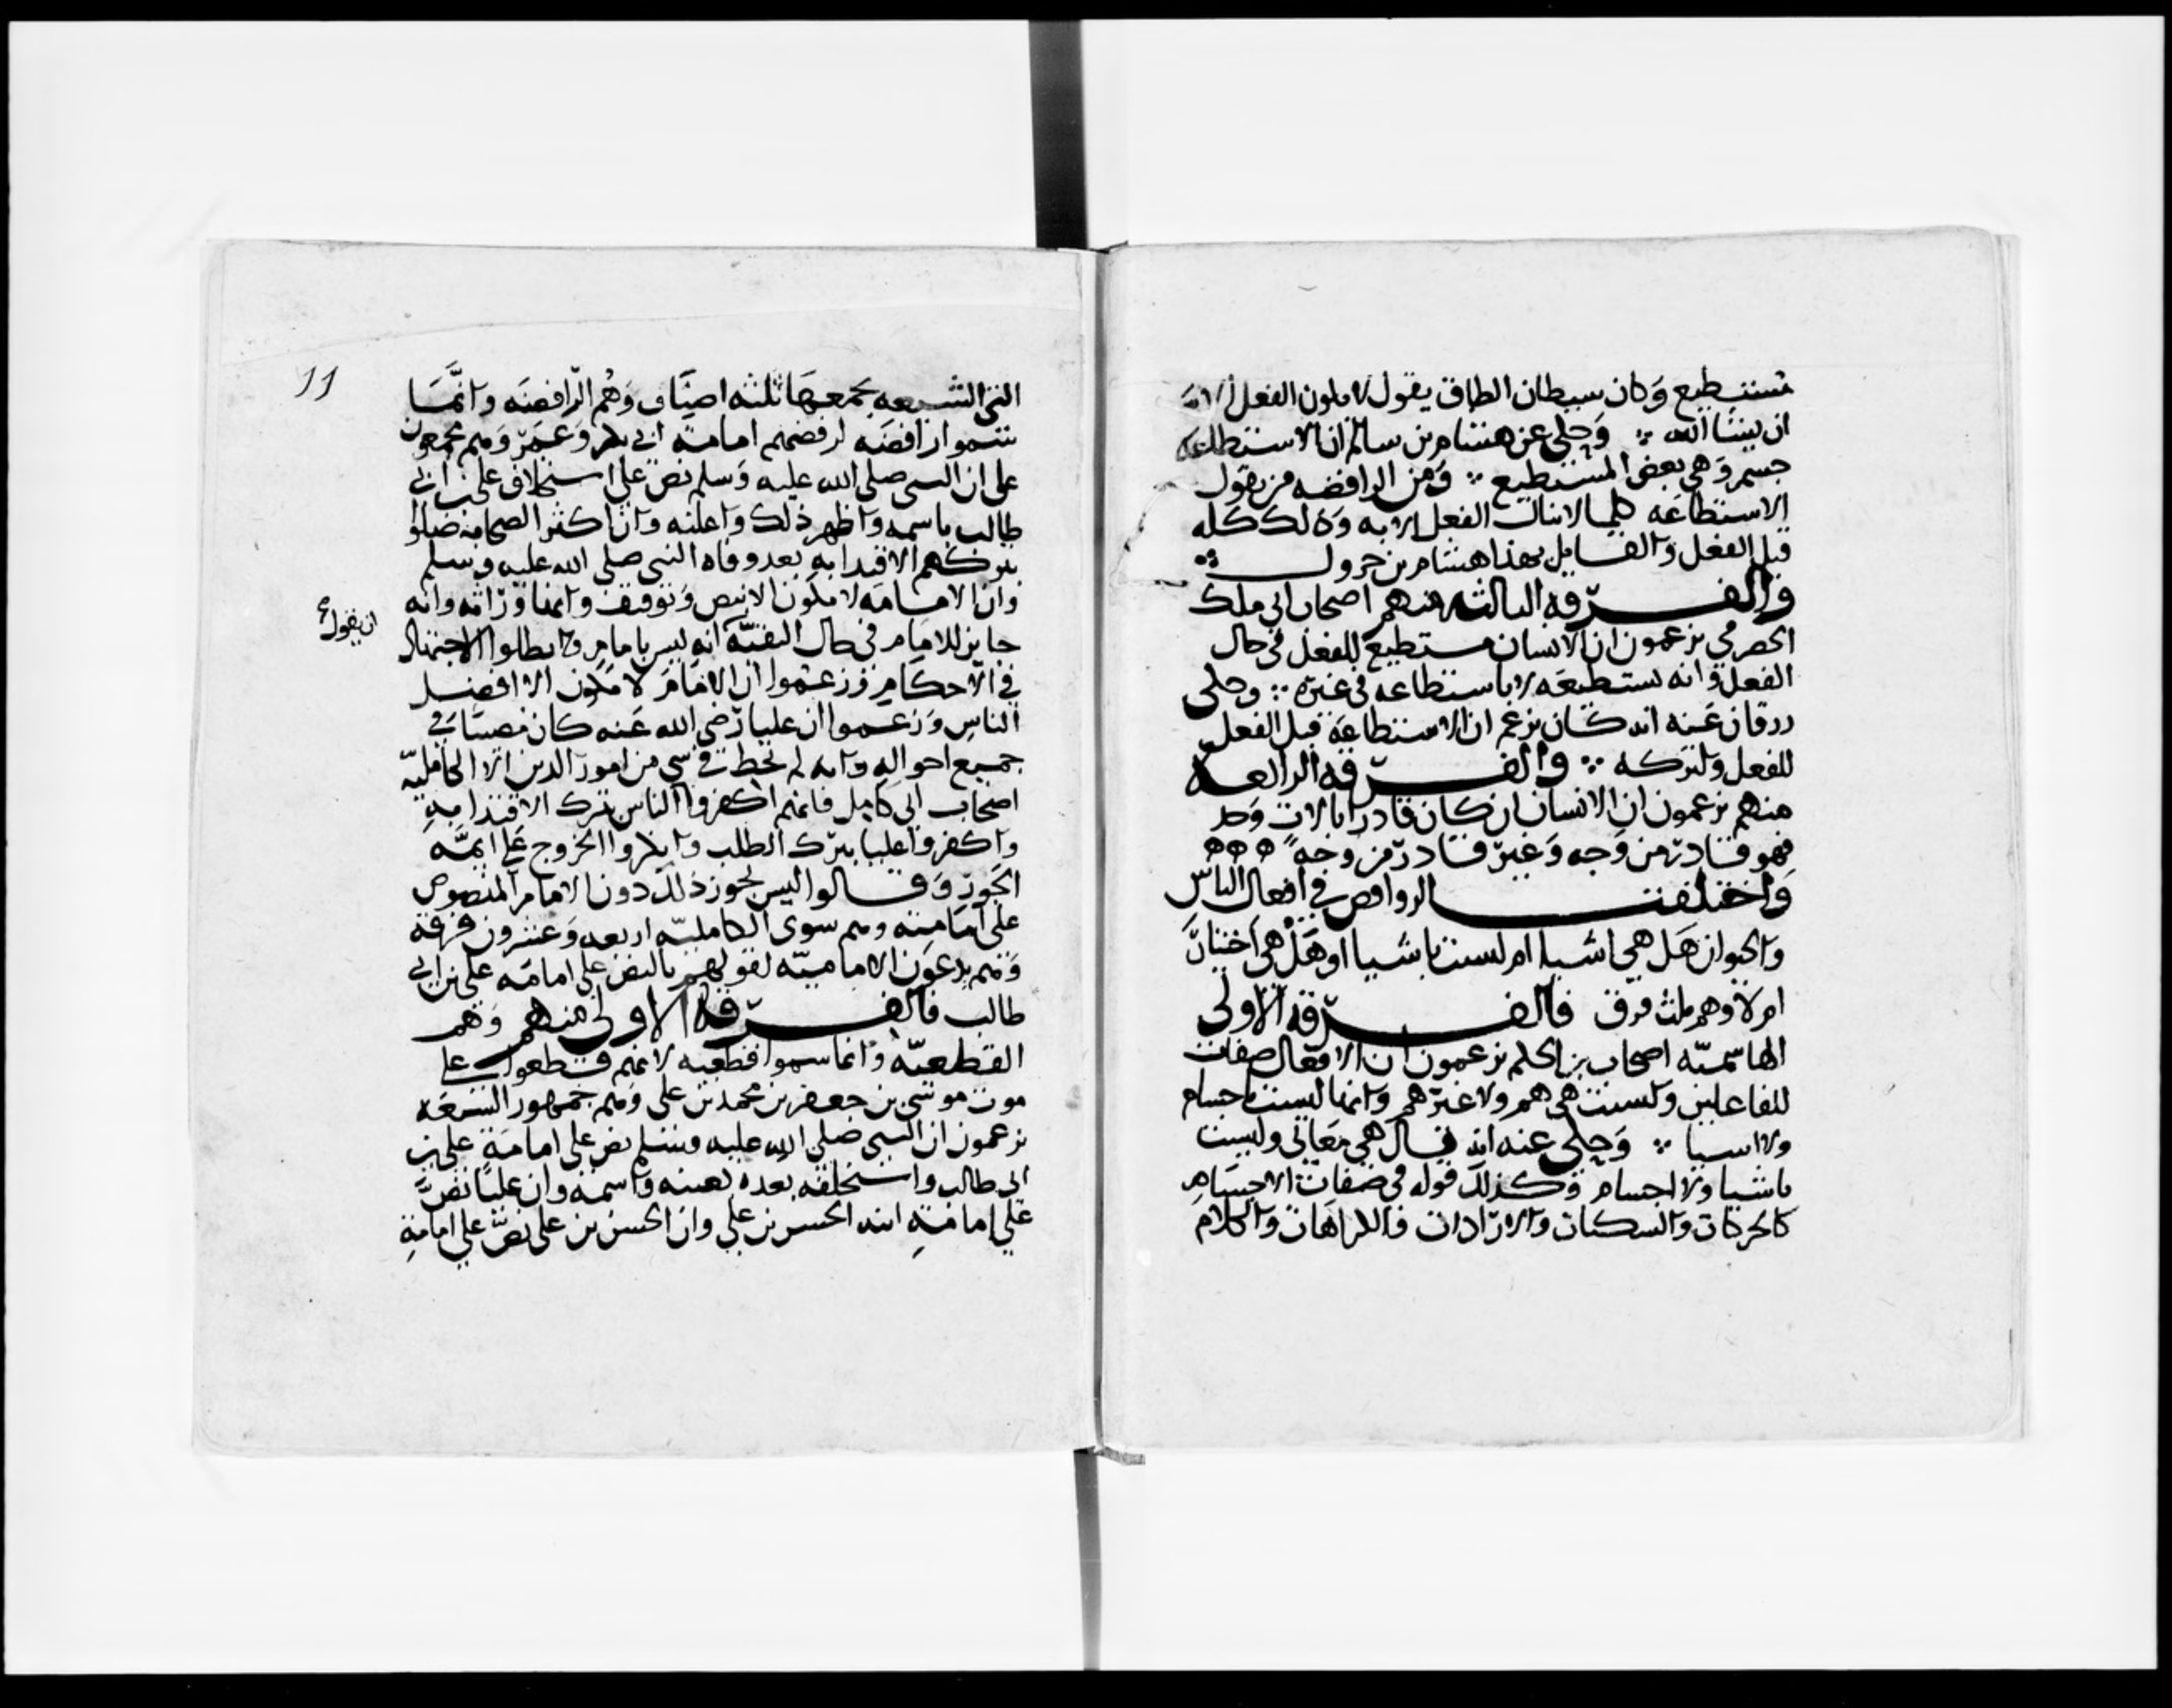 تستطيع وكان شيطان الطاق يقول لا يكون الفعل الا
ان يشا الله ؞ وحكى عن هشام بن سالم ان الاستطاعه
جسم وهي بعض المستطيع ؞ ومن الرافضه من يقول
الاستطاعه كلما لا ينال الفعل الا به وذلك كله
قبل الفعل والقايل بهذا هشام بن جرول
والفرقه الثالثه منهم اصحاب ابي ملك
الحضرمي يزعمون ان الانسان مستطيع للفعل في حال
الفعل وانه يستطيعه لا باستطاعه في غيره ؞ وحكى
زرقان عنه انه كان يزعم ان الاستطاعة قبل الفعل
للفعل ولتركه ؞ والفرقه الرابعه
منهم يزعمون ان الانسان ان كان قادرا بالات وحد
فهو قادر من وجه وغير قادر من وجه ه ه ه
واختلفت الروافض في افعال الناس
والحيوان هل هي اشيا ام ليست باشيا او هل هي اختيار
ام لا وهم ثلث فرق فالفرقه الاولى
الهاشميّه اصحاب بن الحكم يزعمون ان الافعال صفات
للفاعلين وليست هي هم ولا غيرهم وانها ليست باجسام
ولا اشيا ؞ وحكى عنه انه قال هي معاني وليست
باشيا ولا اجسام وكذلك قوله في صفات الاجسام
كالحركات والسكنات والارادات فالكراهات والكلام
11
التي الشيعه بجمعها ثلثه اصناف وهم الرافضه وانّما
سموا رافضه لرفضهم امامة ابي بكر وعمر وهم مجمعون
على ان النبي صلى الله عليه وسلم نص على استخلاف علي بن ابي
طالب باسمه واظهر ذلك واعلنه وان اكثر الصحابة ضلوا
بتركهم الاقتدا به بعد وفاه النبي صلى الله عليه وسلم
وان الامامه لا تكون الا بنص وتوقيف وانها وراثه وانه
جايز للامام في حال التقيّة انه ليس بامام وابطلوا الاجتهاد
ان يقول
في الاحكام وزعموا ان الامام لا يكون الا افضل
الناس وزعموا ان عليا رضي الله عنه كان مصيبا في
جميع احواله وانه لم يخط في شي من امور الدين الا الكامليّه
اصحاب ابي كامل فانهم اكفروا الناس بترك الاقتدا به
واكفروا عليا بترك الطلب وانكروا الخروج على ايمّة
الجور وقالوا ليس يجوز ذلك دون الامام المنصوص
على امامته وهم سوى الكامليّه اربعه وعشرون فرقة
وهم يدعون الاماميّه لقولهم بالنص على امامه علي بن ابي
طالب فالفرقه الاولى منهم وهم
القطعيّه وانما سموا قطعيه لانهم قطعوا على
موت موسى بن جعفر بن محمد بن علي وهم جمهور الشيعه
يزعمون ان النبي صلى الله عليه وسلم نص على امامة علي بن
ابي طالب واستخلفه بعده بعينه واسمه وان عليا نصّ
على امامة ابنه الحسن بن علي وان الحسن بن علي نصّ على امامة